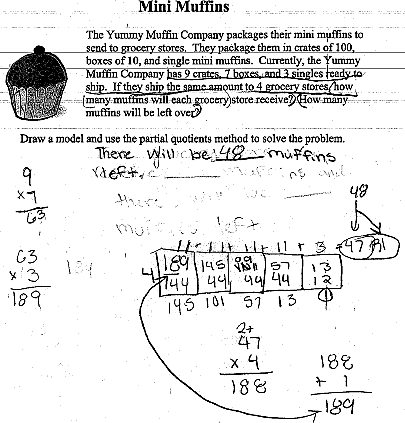 Mini Muffins
The Yummy Muffin Company packages their mini muffins to
send to grocery stores. They package them in crates of 100,
boxes of 10, and single mini muffins. Currently, the Yummy
Muffin Company has 9 crates, 7 boxes, and 3 singles ready to
ship. If they ship the same amount to 4 grocery stores, how
many muffins will each grocery store receive? How many
muffins will be left over?
Draw a model and use the partial quotients method to solve the problem.
There will be 48 muffins
left.
muffins and
there
muffins left
9
x 7
63
63
x 3
189
189
48
11 + 11 + 11 + 11 + 3 = 47 R1
4 189 145 57 13
144 44 44 44 12
145 101 57 13 1
2+
47
x 4
188
188
+ 1
189